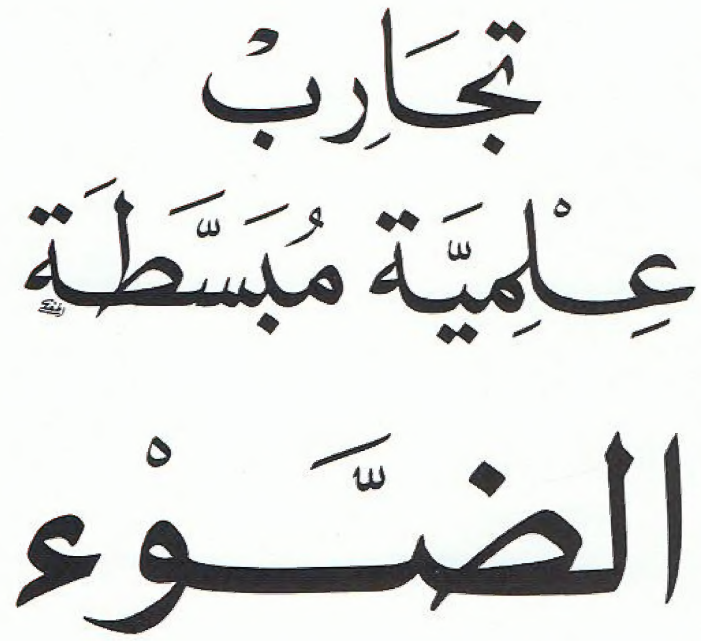 تجَارِبْ
عِلْمِيَّة مُبَسَّطَة
الضَّوْء